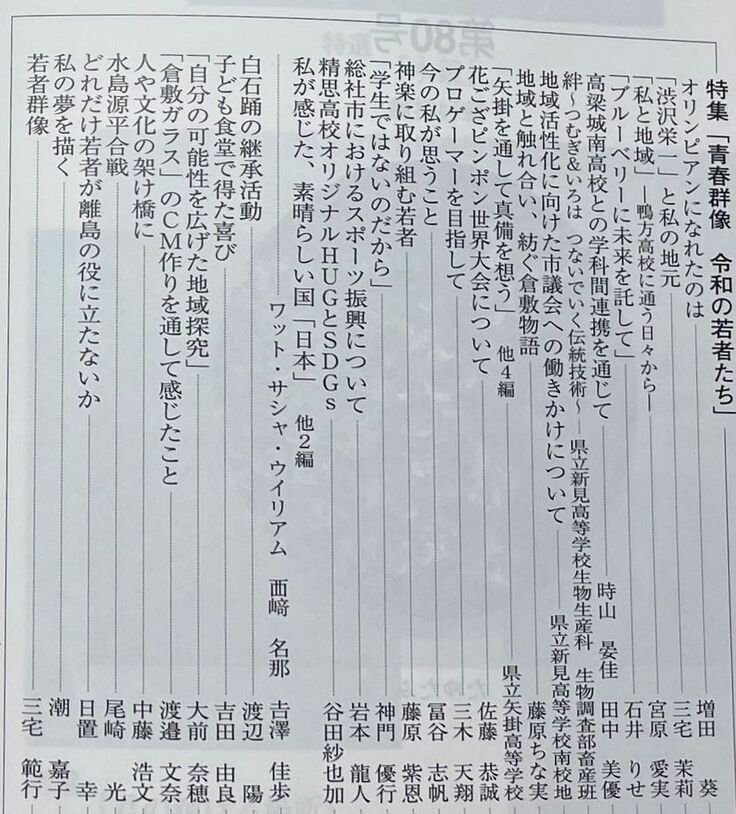 特集「青春群像　令和の若者たち」
オリンピアンになれたのは 増田　葵
「渋沢栄一」と私の地元 三宅　茉莉
「私と地域」―鴨方高校に通う日々から― 宮原　愛実
「ブルーベリーに未来を託して」 石井　りせ
高梁城南高校との学科間連携を通じて 時山　晏佳　田中　美優
絆～つむぎ&いろは　つないでいく伝統技術～ 県立新見高等学校生物生産科　生物調査部畜産班
地域活性化に向けた市議会への働きかけについて 県立新見高等学校南校地
地域と触れ合い、紡ぐ倉敷物語 藤原ちな実
「矢掛を通して真備を想う」　他4編 県立矢掛高等学校
花ござピンポン世界大会について 佐藤　恭誠
プロゲーマーを目指して 三木　天翔
今の私が思うこと 冨谷　志帆
神楽に取り組む若者 藤原　紫恩
「学生ではないのだから」 神門　優行
総社市におけるスポーツ振興について 岩本　龍人
精思高校オリジナルHUGとSDGs 谷田紗也加
私が感じた、素晴らしい国「日本」　他2編
ワット・サシャ・ウイリアム　西﨑　名那　吉澤　佳歩
白石踊の継承活動 渡辺　陽
子ども食堂で得た喜び 吉田　由良
「自分の可能性を広げた地域探究」 大前　奈穂
「倉敷ガラス」のCM作りを通して感じたこと 渡邉　文奈
人や文化の架け橋に 中藤　浩文
水島源平合戦 尾崎　光
どれだけ若者が離島の役に立たないか 日置　幸
私の夢を描く 潮　嘉子
若者群像 三宅　範行